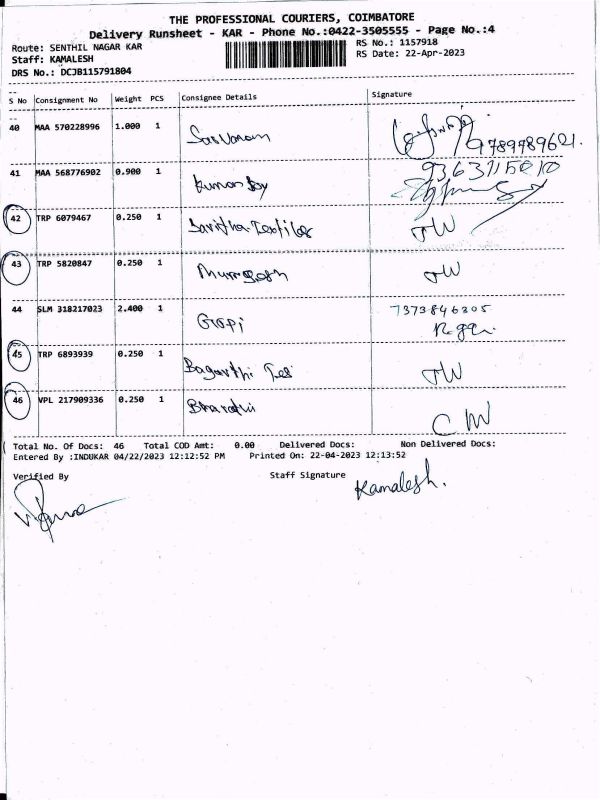 THE PROFESSIONAL COURIERS, COIMBATORE
Delivery Runsheet - KAR - Phone No.:0422-3505555 - Page No.:4
Route: SENTHIL NAGAR KAR RS No.: 1157918
Staff: KAMALESH RS Date: 22-Apr-2023
DRS No.: DCJB115791804
S No Consignment No Weight PCS Consignee Details Signature
40 MAA 570228996 1.000 1 9789789621.
41 MAA 568776902 0.900 1
42 TRP 6079467 0.250 1 JW
43 TRP 5820847 0.250 1 Murugesh JW
44 SLM 318217023 2.400 1 Gopi 7373846305
45 TRP 6893939 0.250 1 JW
46 VPL 217909336 0.250 1 Bharathi
Total No. Of Docs: 46 Total COD Amt: 0.00 Delivered Docs: Non Delivered Docs:
Entered By :INDUKAR 04/22/2023 12:12:52 PM Printed On: 22-04-2023 12:13:52
Verified By Staff Signature Kamalesh.